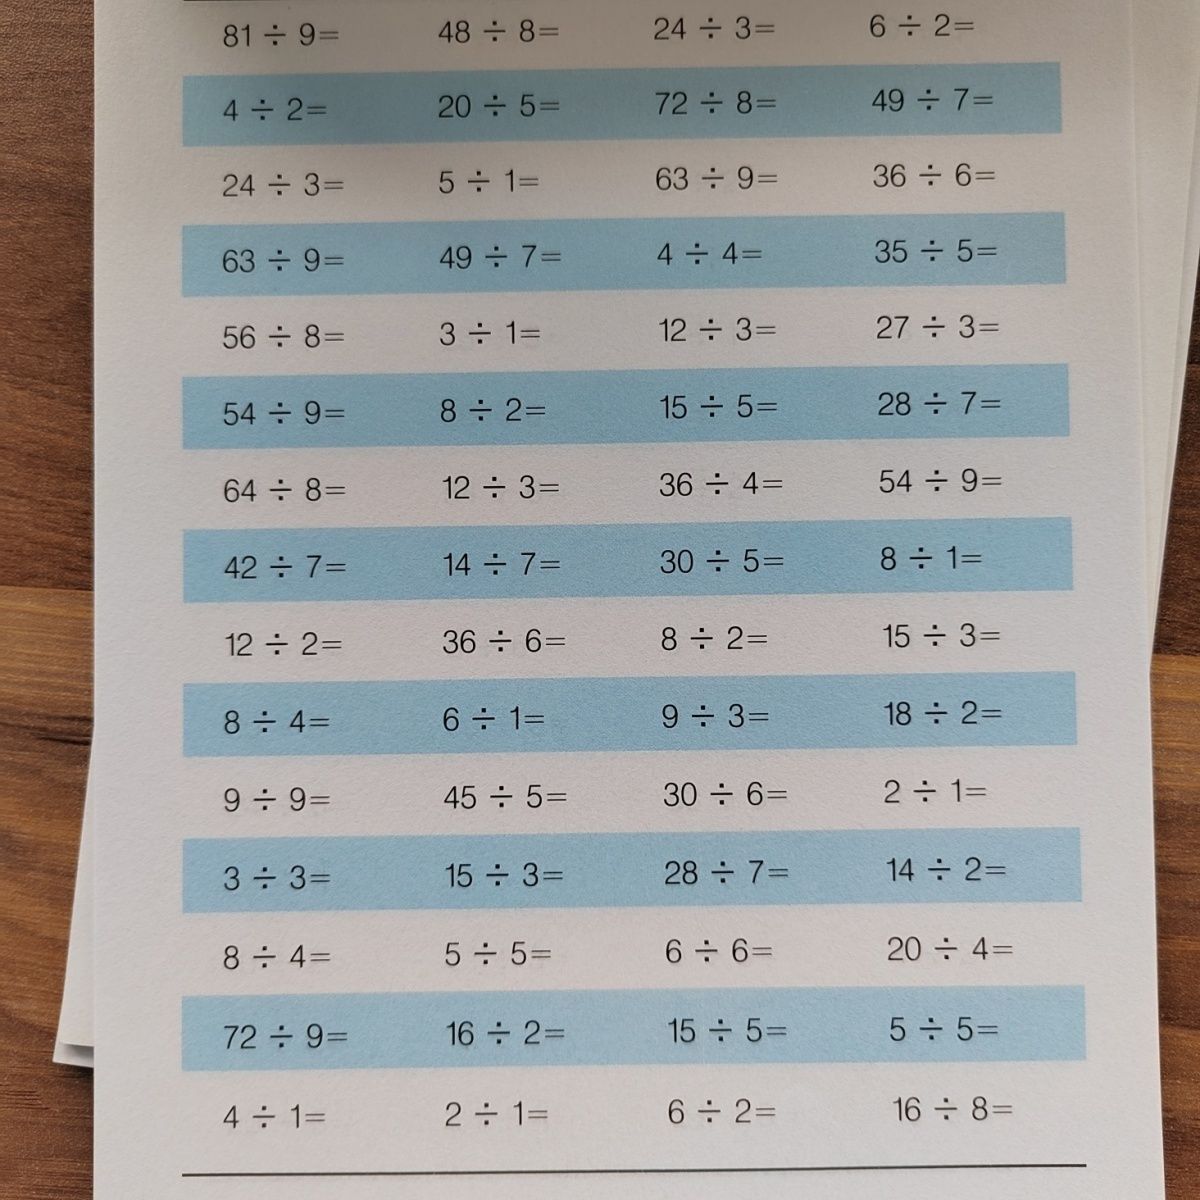 81 ÷ 9= 48 ÷ 8= 24 ÷ 3= 6 ÷ 2=
4 ÷ 2= 20 ÷ 5= 72 ÷ 8= 49 ÷ 7=
24 ÷ 3= 5 ÷ 1= 63 ÷ 9= 36 ÷ 6=
63 ÷ 9= 49 ÷ 7= 4 ÷ 4= 35 ÷ 5=
56 ÷ 8= 3 ÷ 1= 12 ÷ 3= 27 ÷ 3=
54 ÷ 9= 8 ÷ 2= 15 ÷ 5= 28 ÷ 7=
64 ÷ 8= 12 ÷ 3= 36 ÷ 4= 54 ÷ 9=
42 ÷ 7= 14 ÷ 7= 30 ÷ 5= 8 ÷ 1=
12 ÷ 2= 36 ÷ 6= 8 ÷ 2= 15 ÷ 3=
8 ÷ 4= 6 ÷ 1= 9 ÷ 3= 18 ÷ 2=
9 ÷ 9= 45 ÷ 5= 30 ÷ 6= 2 ÷ 1=
3 ÷ 3= 15 ÷ 3= 28 ÷ 7= 14 ÷ 2=
8 ÷ 4= 5 ÷ 5= 6 ÷ 6= 20 ÷ 4=
72 ÷ 9= 16 ÷ 2= 15 ÷ 5= 5 ÷ 5=
4 ÷ 1= 2 ÷ 1= 6 ÷ 2= 16 ÷ 8=